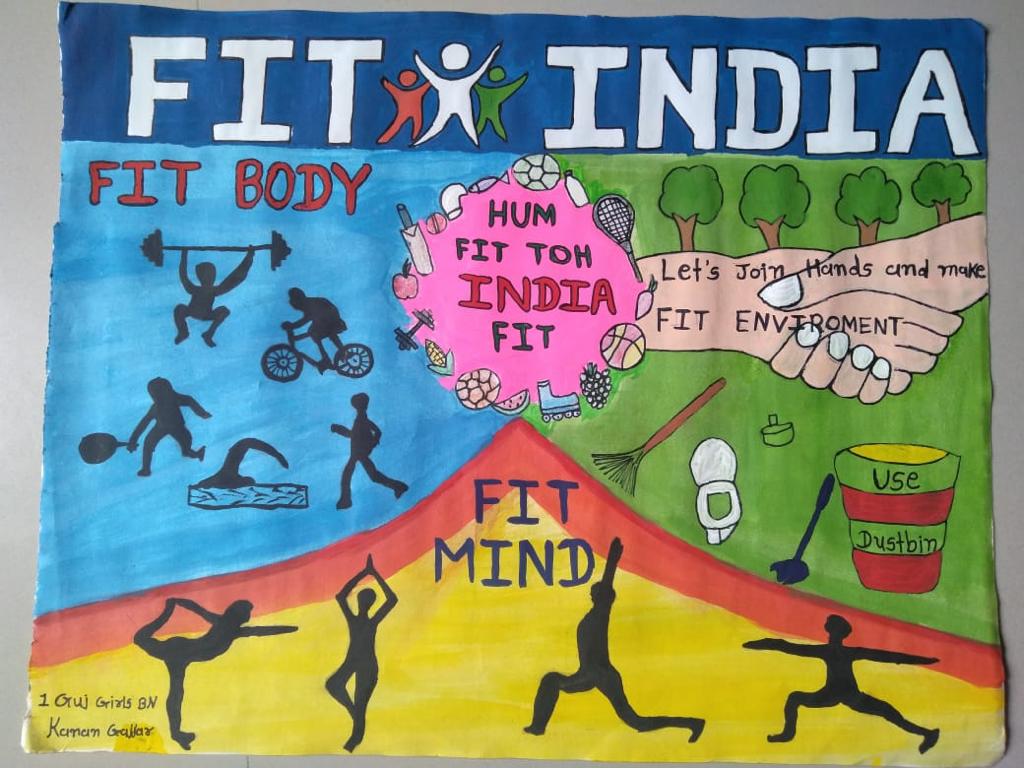 FIT INDIA
FIT BODY
HUM
FIT TOH
INDIA
FIT
Let's Join Hands and make
FIT ENVIROMENT
FIT
MIND
Use
Dustbin
1 Guj Girls BN